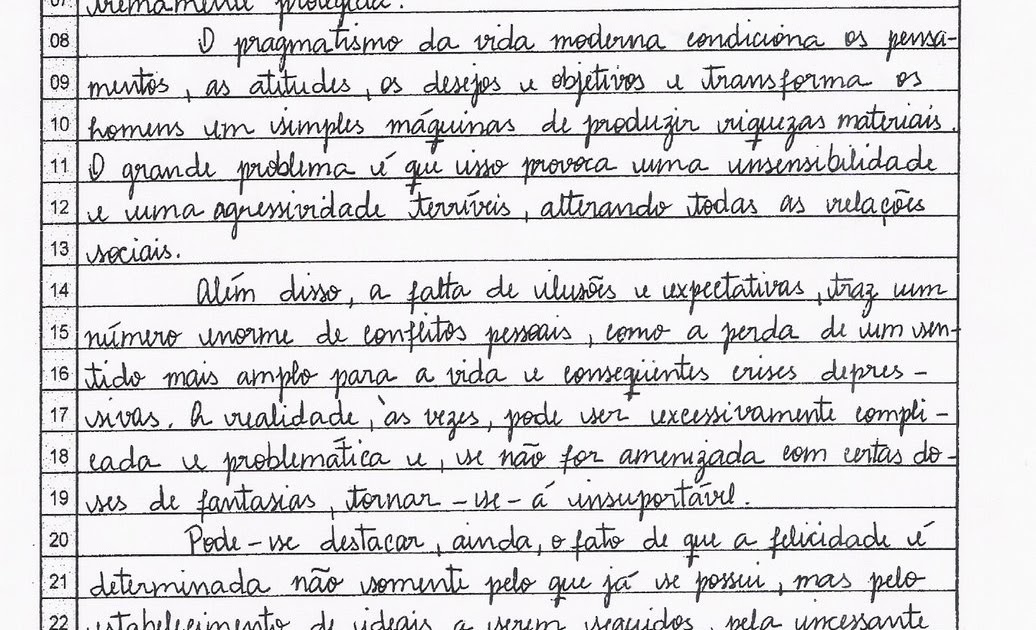 07 tremamente protegida.
08 O pragmatismo da vida moderna condiciona os pensa-
09 mentos, as atitudes, os desejos e objetivos e transforma os
10 homens em simples máquinas de produzir riquezas materiais.
11 O grande problema é que isso provoca uma insensibilidade
12 e uma agressividade terríveis, alterando todas as relações
13 sociais.
14 Além disso, a falta de ilusões e expectativas, traz um
15 número enorme de conflitos pessoais, como a perda de um sen-
16 tido mais amplo para a vida e conseqüentes crises depres-
17 sivas. A realidade, às vezes, pode ser excessivamente compli-
18 cada e problemática e, se não for amenizada com certas do-
19 ses de fantasias, tornar-se-á insuportável.
20 Pode-se destacar, ainda, o fato de que a felicidade é
21 determinada não somente pelo que já se possui, mas pelo
22 estabelecimento de ideais a serem seguidos, pela incessante